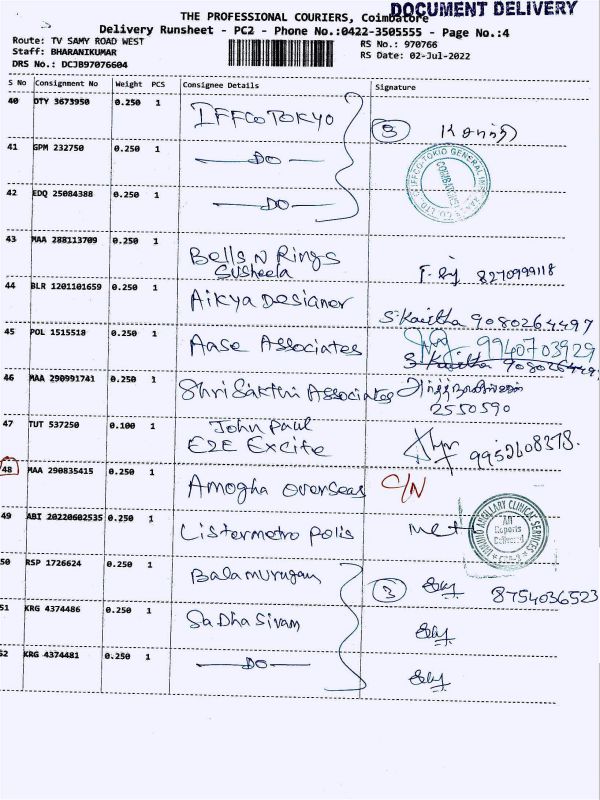 DOCUMENT DELIVERY
THE PROFESSIONAL COURIERS, Coimbatore
Delivery Runsheet - PC2 - Phone No.:0422-3505555 - Page No.:4
Route: TV SAMY ROAD WEST RS No.: 970766
Staff: BHARANIKUMAR RS Date: 02-Jul-2022
DRS No.: DCJB97076604
S No Consignment No Weight PCS Consignee Details Signature
40 DTY 3673950 0.250 1 IFFCO TOKYO 3
41 GPM 232750 0.250 1 DO
42 EDQ 25084388 0.250 1 DO
43 MAA 288113709 0.250 1 Bells N Rings
Susheela 8270999118
44 BLR 1201101659 0.250 1 Aikya Designer S. Kavitha 9080264497
45 POL 1515518 0.250 1 Aase Associates 9940703929
S. Kavitha 908026449
46 MAA 290991741 0.250 1 Shri Sakthi Associates
2550590
47 TUT 537250 0.100 1 John Paul
E2E Excite 9952608378.
48 MAA 290835415 0.250 1 Amogha overseas C/N
49 ABI 20220602535 0.250 1 Listermetropolis
All Reports Delivered
50 RSP 1726624 0.250 1 Balamurugan 3 8754036523
51 KRG 4374486 0.250 1 Sadhasivam
52 KRG 4374481 0.250 1 DO